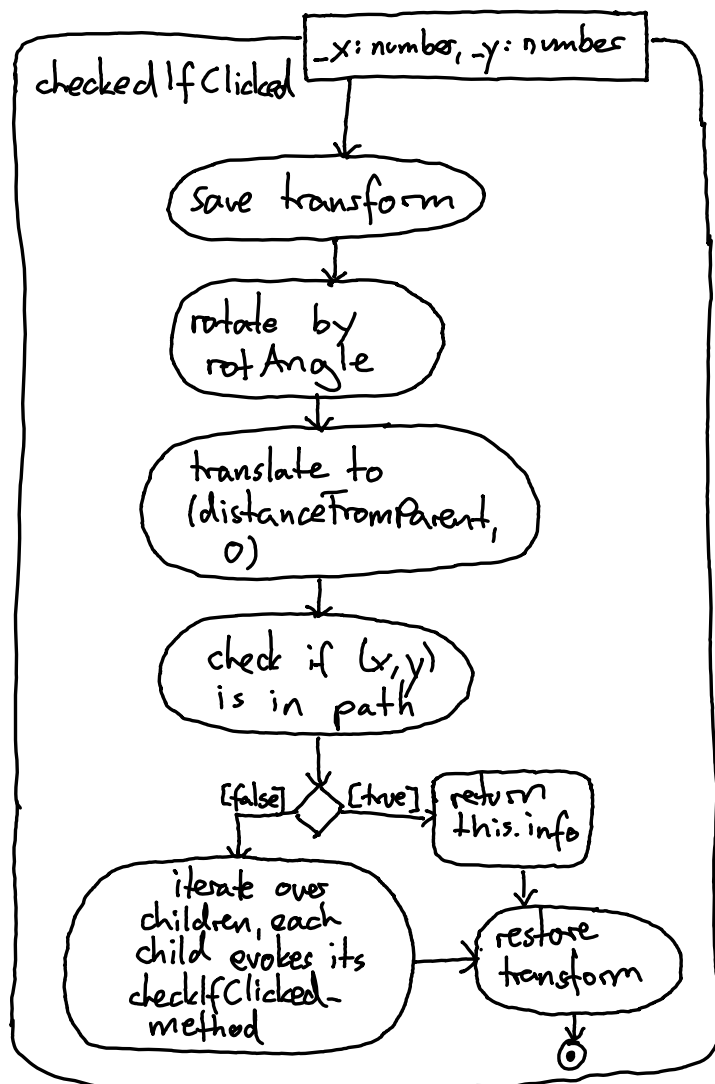 _x: number, _y: number
checkedIfClicked
save transform
rotate by
rotAngle
translate to
(distanceFromParent,
0)
check if (x,y)
is in path
[false]
[true]
return
this.info
iterate over
children, each
child evokes its
checkIfClicked-
method
restore
transform